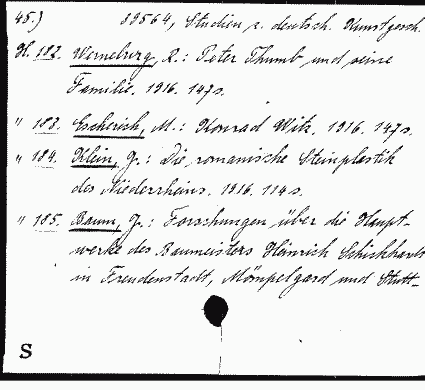 45.) 39564, Studien z. deutsch. Kunstgesch.
H. 182. Werneburg, R.: Peter Thumb und seine
Familie. 1916. 147 s.
" 183. Escherich, M.: Konrad Witz. 1916. 147 s.
" 184. Klein, J.: Die romanische Steinplastik
des Niederrheins. 1916. 114 s.
" 185. Baum, J.: Forschungen über die Haupt-
werke des Baumeisters Heinrich Schickhardt
in Freudenstadt, Mömpelgard und Stutt-
S